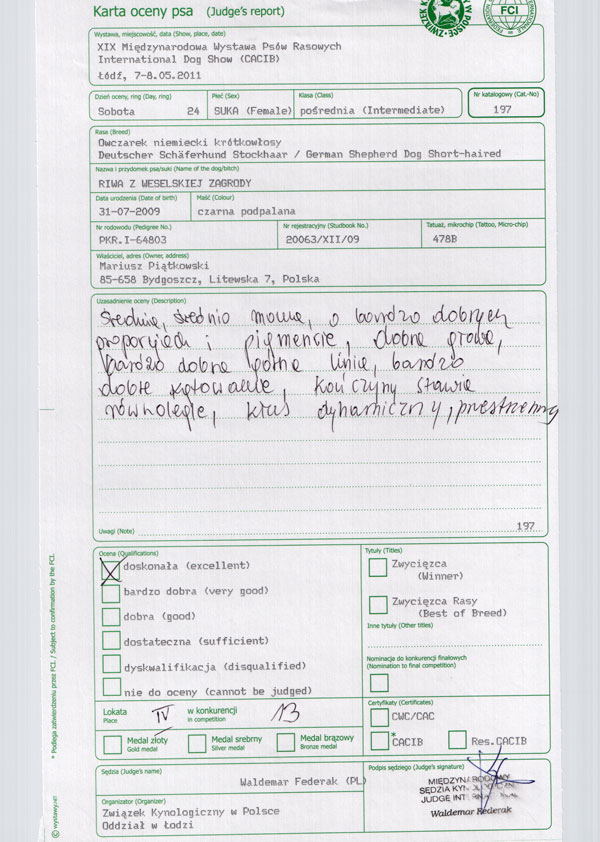 Karta oceny psa (Judge's report)
ZWIĄZEK KY W POLSCE
FCI
Wystawa, miejscowość, data (Show, place, date)
XIX Międzynarodowa Wystawa Psów Rasowych
International Dog Show (CACIB)
Łódź, 7-8.05.2011
Dzień oceny, ring (Day, ring) Płeć (Sex) Klasa (Class) Nr katalogowy (Cat.-No)
Sobota 24 SUKA (Female) pośrednia (Intermediate) 197
Rasa (Breed)
Owczarek niemiecki krótkowłosy
Deutscher Schäferhund Stockhaar / German Shepherd Dog Short-haired
Nazwa i przydomek psa/suki (Name of the dog/bitch)
RIWA Z WESELSKIEJ ZAGRODY
Data urodzenia (Date of birth) Maść (Colour)
31-07-2009 czarna podpalana
Nr rodowodu (Pedigree No.) Nr rejestracyjny (Studbook No.) Tatuaż, mikrochip (Tattoo, Micro-chip)
PKR.I-64803 20063/XII/09 478B
Właściciel, adres (Owner, address)
Mariusz Piątkowski
85-658 Bydgoszcz, Litewska 7, Polska
Uzasadnienie oceny (Description)
Średnia, średnio mocna, o bardzo dobrych
proporcjach i pigmencie, dobra głowa,
bardzo dobra górna linia, bardzo
dobre kątowanie, kończyny stawia
równolegle, kłus dynamiczny, przestrzenny
Uwagi (Note) 197
Ocena (Qualifications) Tytuły (Titles)
doskonała (excellent)
bardzo dobra (very good)
dobra (good)
dostateczna (sufficient)
dyskwalifikacja (disqualified)
nie do oceny (cannot be judged)
Zwycięzca
(Winner)
Zwycięzca Rasy
(Best of Breed)
Inne tytuły (Other titles)
Nominacja do konkurencji finałowych
(Nomination to final competition)
Lokata IV w konkurencji 13
Place in competition
Certyfikaty (Certificates)
CWC/CAC
* CACIB Res.CACIB
Medal złoty Medal srebrny Medal brązowy
Gold medal Silver medal Bronze medal
Sędzia (Judge's name) Podpis sędziego (Judge's signature)
Waldemar Federak (PL)
MIĘDZYNARODOWY
SĘDZIA KYNOLOGICZNY
JUDGE INT
Waldemar Federak
Organizator (Organizer)
Związek Kynologiczny w Polsce
Oddział w Łodzi
* Podlega zatwierdzeniu przez FCI. / Subject to confirmation by the FCI.
© wystawy.net